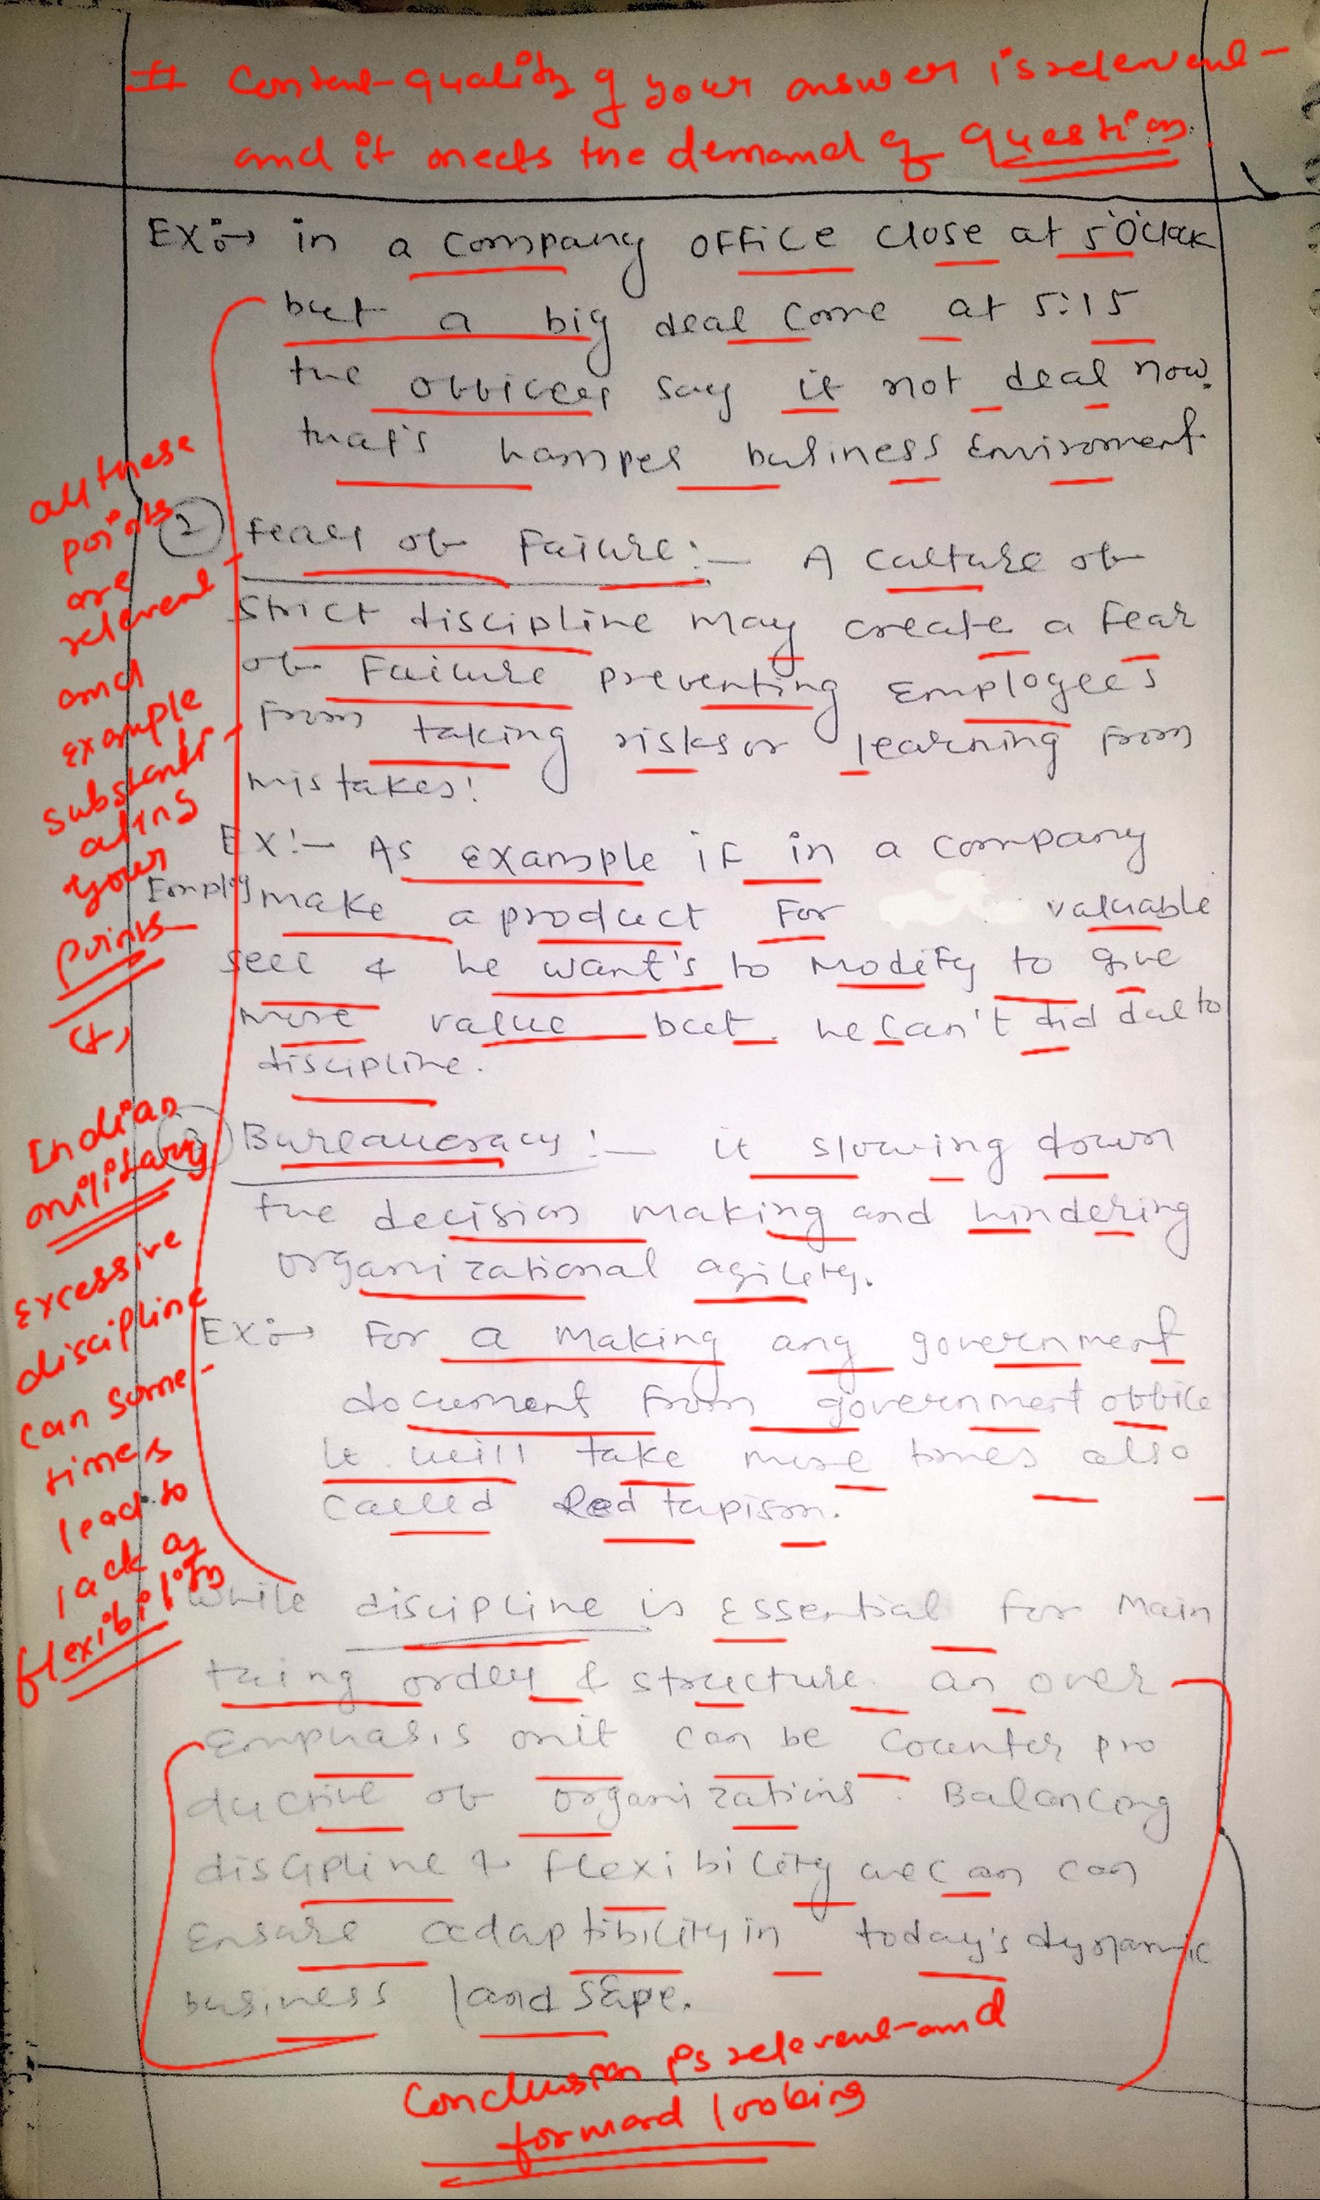 # Content quality of your answer is relevent
and it meets the demand of question.
Ex:→ in a company office close at 5'O'clock
but a big deal come at 5:15
the officer say it not deal now.
that's hamper business Enviroment.
all these
points
are
relevent
and
example
substanti-
ating
your
points
② Fear of Failure:- A culture of
strict discipline may create a fear
of Failure preventing Employee's
From taking risks or learning from
mistakes!
Ex:- As example if in a company
Employ make a product For valuable
sell & he want's to Modify to give
more value but he can't did due to
discipline.
Indian
military
excessive
discipline
can some-
times
lead to
lack of
flexibility
③ Bureaucracy:- it slowing down
the decision making and hindering
organizational agility.
Ex:→ For a Making any government
document from government office
it will take more times also
called Red tapism.
While discipline is Essential for Main
taing order & structure. an over
Emphasis onit can be Counter pro
ductive of organizations. Balancing
discipline & flexibility we can can
Ensure adaptibility in today's dynamic
business landscape.
Conclusion is relevent and
forward looking